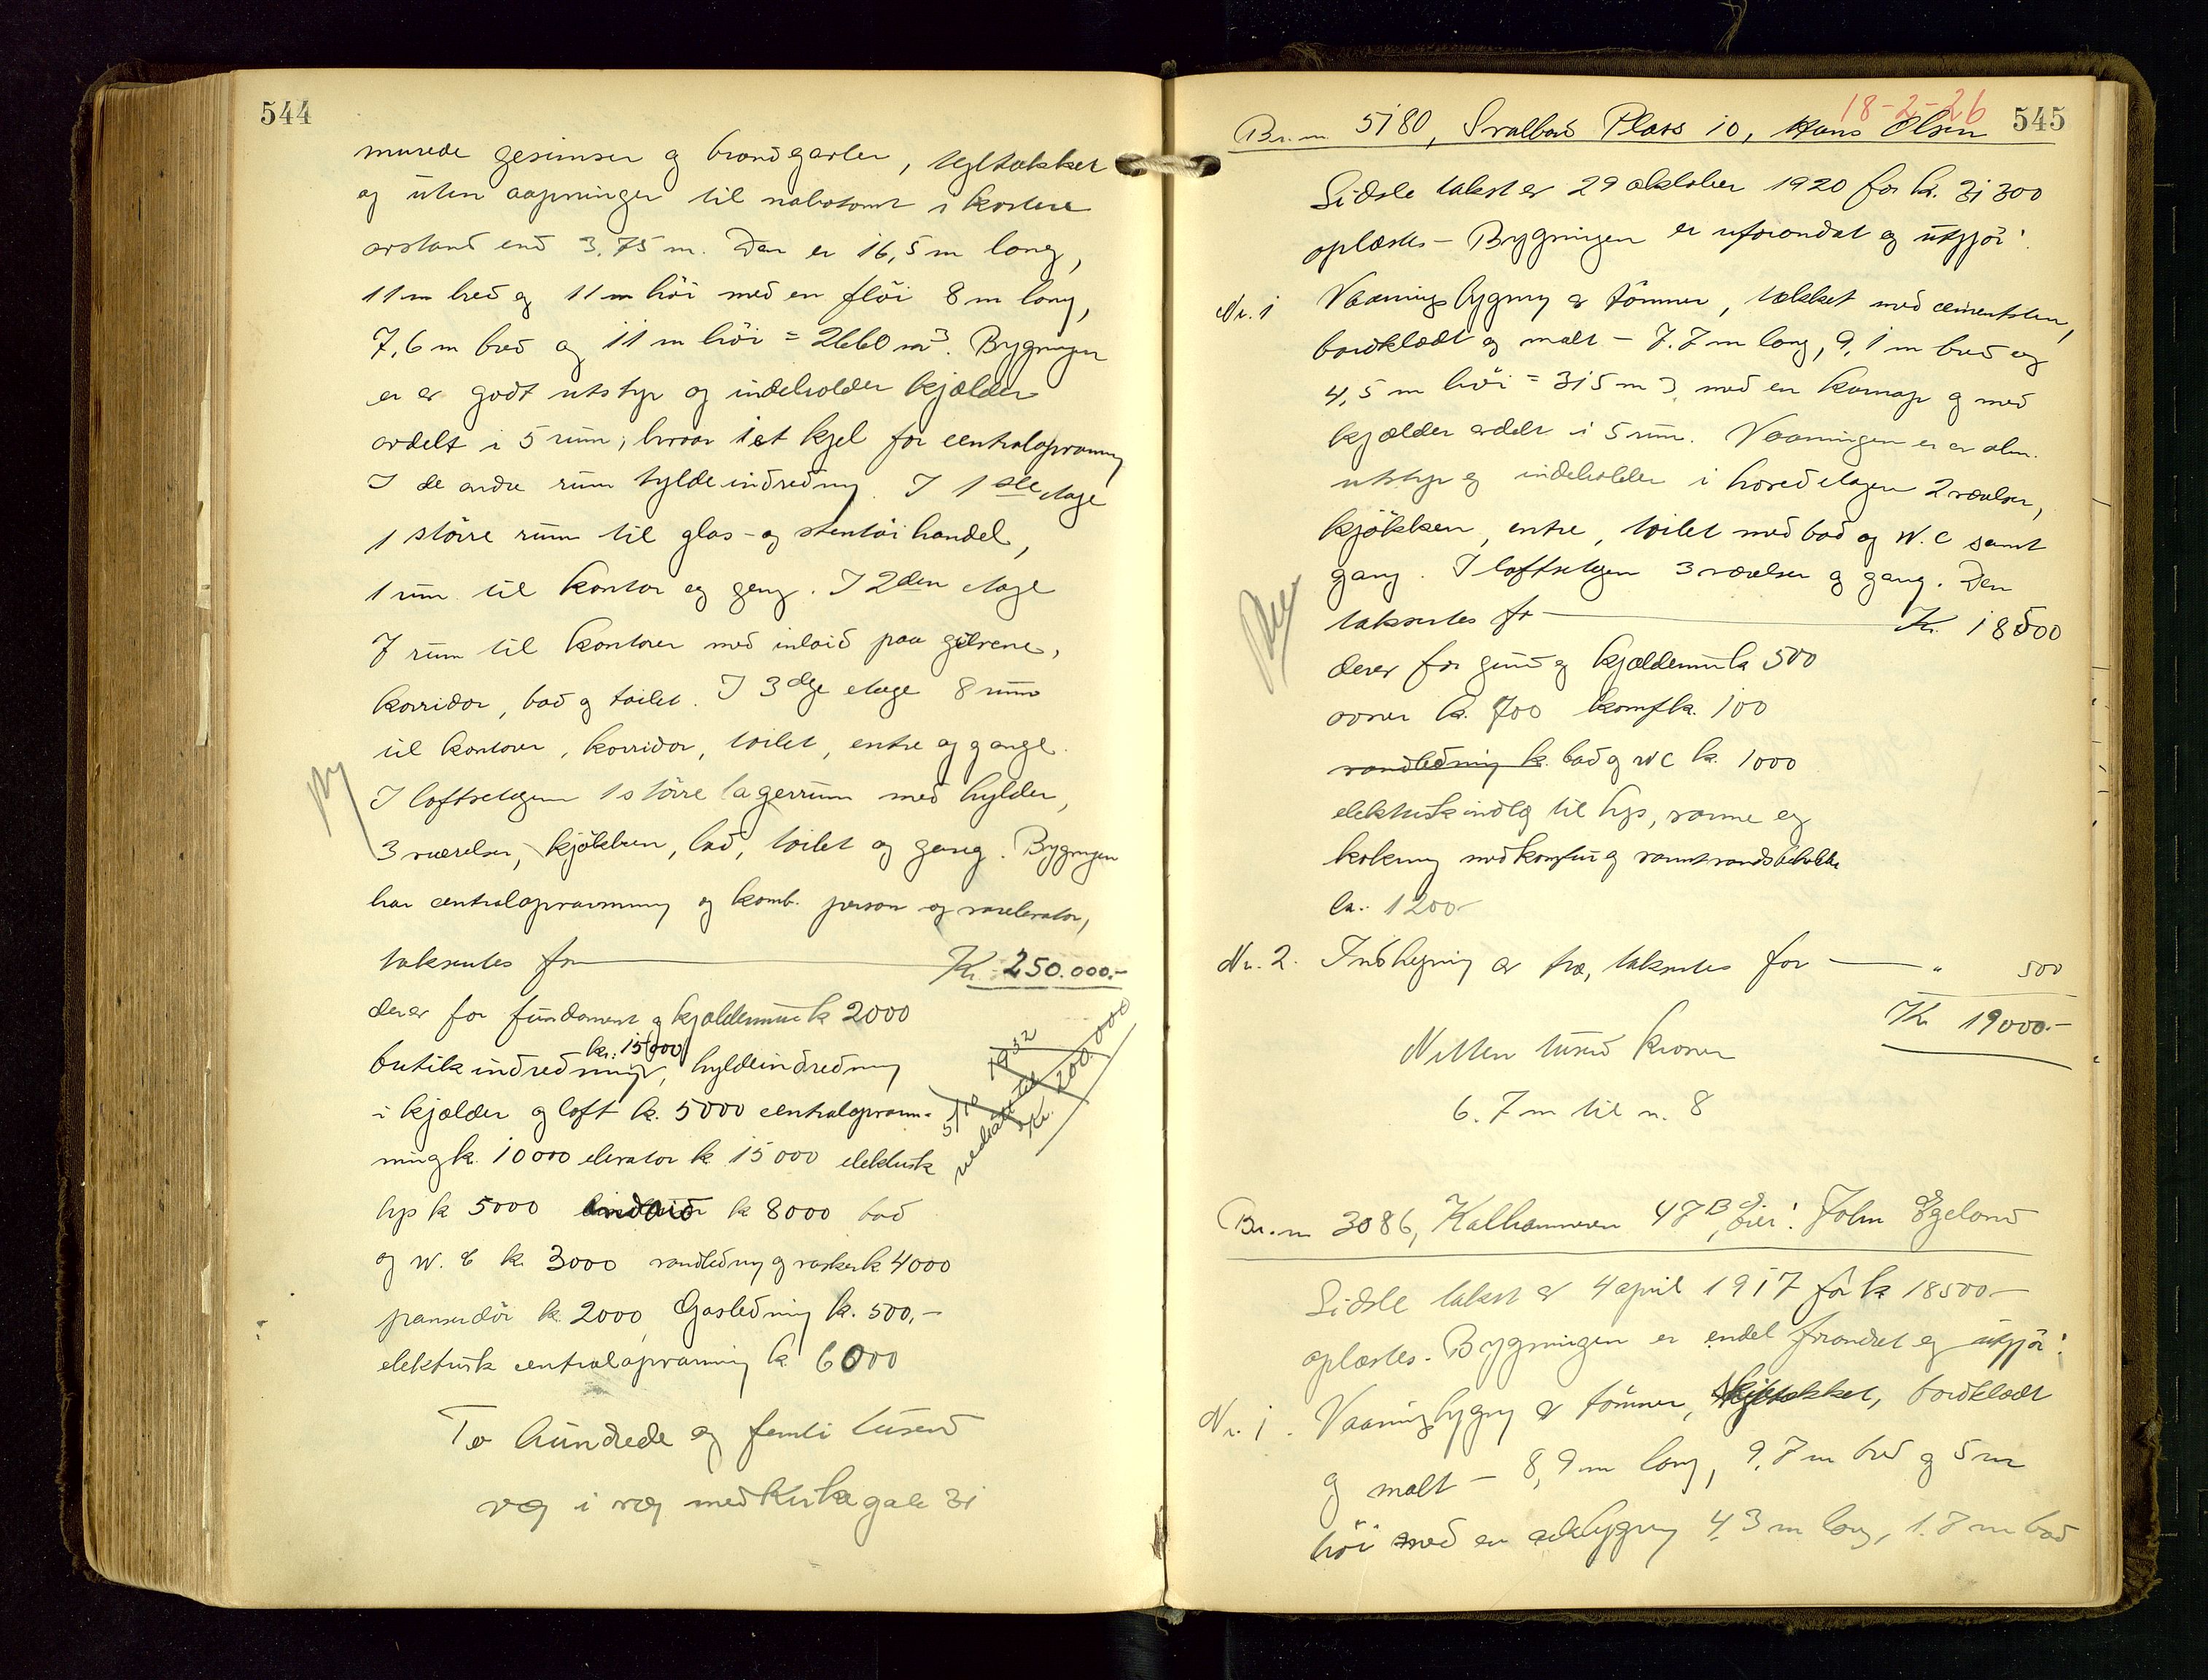 544
murede gesimser og brandgavler, tegltækket
og uten aapninger til nabotomt i kortere
avstand end 3,75 m. Den er 16,5 m lang,
11 m bred og 11 m höi med en flöi 8 m lang,
7,6 m bred og 11 m höi = 2660 m3. Bygningen
er av godt utstyr og indeholder kjælder
avdelt i 5 rum, hvorav i et kjel for centralopvarmning
I de andre rum hyldeindredning. I 1ste etage
1 större rum til glas- og stentöi handel,
1 rum til kontor og gang. I 2den etage
7 rum til kontorer med inlaid paa gulvene,
korridor, bad og toilet. I 3dje etage 8 rum
til kontorer, korridor, toilet, entre og gange.
I loftsetagen 1 större lagerrum med hylder,
3 værelser, kjökken, bad, toilet og gang. Bygningen
har centralopvarmning og komb. person og vareelevator,
takseres for Kr. 250.000.-
derav for fundament og kjældermur k 2000
kr. 15000
butikindredning, hyldeindredning
i kjælder og loft k. 5000 centralopvarm-
ning k. 10000 elevator k 15000 elektrisk
lys k 5000 k 8000 bad
og W. C k. 3000 vandledning og vasker k 4000
panserdör k. 2000, Gasledning k. 500,-
elektrisk centralopvarmning k. 6000
5/10 1932
nedsat til
Kr. 200.000
To hundrede og femti tusend
væg i væg med Kirkegate 31
18-2-26
545
Br. nr 5180, Svalbard Plass 10, Hans Olsen
Sidste takst av 29 oktober 1920 for kr. 31300
oplæstes - Bygningen er uforandret og utgjör:
Nr. 1 Vaaningsbygning av tömmer, tækket med cementsten,
bordklædt og malt - 7.7 m lang, 9,1 m bred og
4,5 m höi = 315 m3, med en karnap og med
kjælder avdelt i 5 rum. Vaaningen er av alm.
utstyr og indeholder i hovedetagen 2 værelser,
kjökken, entre, toilet med bad og W.C samt
gang. I loftsetagen 3 værelser og gang. Den
takseres for Kr. 18500
derav for grund og kjældermur k 500
ovner k. 700 komf k. 100
vandledning k. bad og WC k. 1000
elektrisk indlæg til lys, varme og
kokning med komfur og varmtvandsbeholder
kr. 1200-
Nr. 2. Indhegning av træ, takseres for " 500
Kr 19000.-
Nitten tusend kroner
6.7 m til nr. 8
Br. nr 3086, Kalhammeren 47B, Eier: John Egeland
Sidste takst av 4 april 1917 for k 18500-
oplæstes. Bygningen er endel forandret og utgjör:
Nr. 1. Vaaningsbygning av tömmer, bordklædt
og malt - 8,9 m lang, 9,7 m bred og 5 m
höi med en utbygning 4,3 m lang, 1.7 m bred